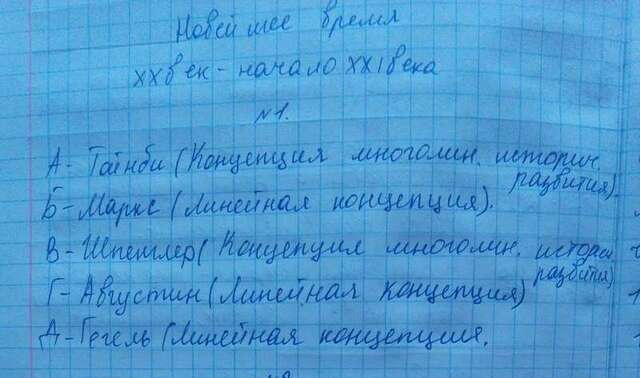 Новейшее время
XX век - начало XXI века
№1.
А - Тойнби (Концепция многолин. историч.
развития).
Б - Маркс (Линейная концепция).
В - Шпенглер (Концепция многолин. истори
развития)
Г - Августин (Линейная концепция)
Д - Гегель (Линейная концепция.